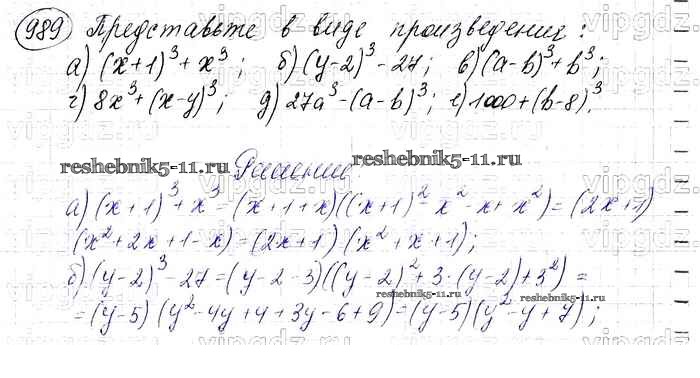 989 Представьте в виде произведения:
а) (x+1)³+x³; б) (y-2)³-27; в) (a-b)³+b³;
г) 8x³+(x-y)³; д) 27a³-(a-b)³; е) 1000+(b-8)³.
reshebnik5-11.ru Решение reshebnik5-11.ru
а) (x+1)³+x³=(x+1+x)((x+1)²-x²-x+x²)=(2x+1)
(x²+2x+1-x)=(2x+1)(x²+x+1);
б) (y-2)³-27=(y-2-3)((y-2)²+3·(y-2)+3²)=
reshebnik5-11.ru reshebnik5-11.ru
=(y-5)(y²-4y+4+3y-6+9)=(y-5)(y²-y+7);